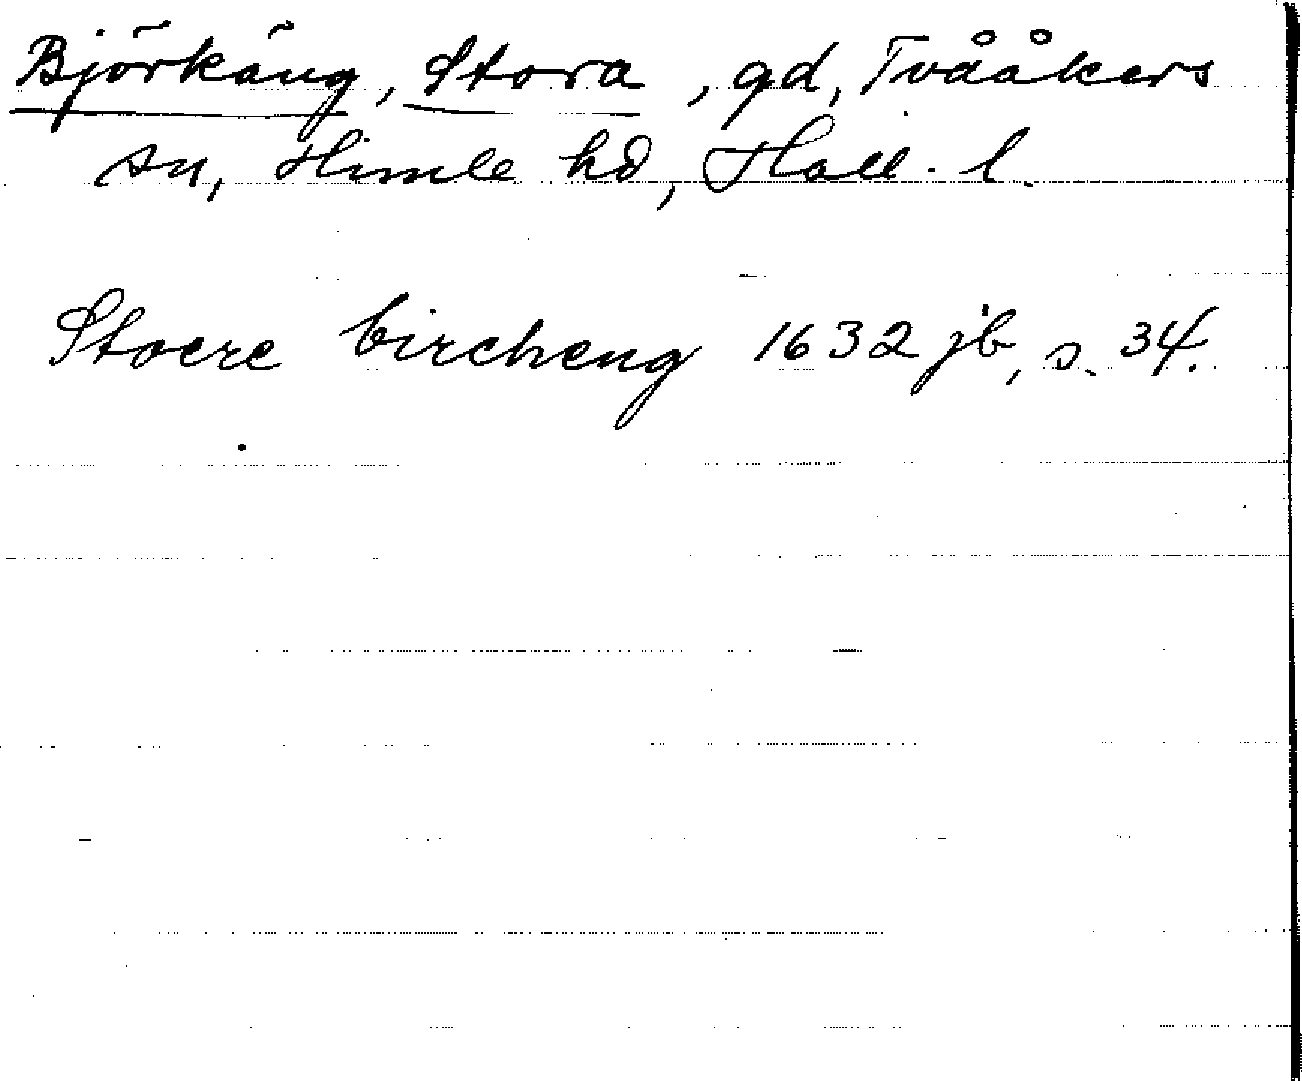 Björkäng, Stora, gd, Tvååkers
sn, Himle hd, Hall. l.
Stoere bircheng 1632 jb, s. 34.